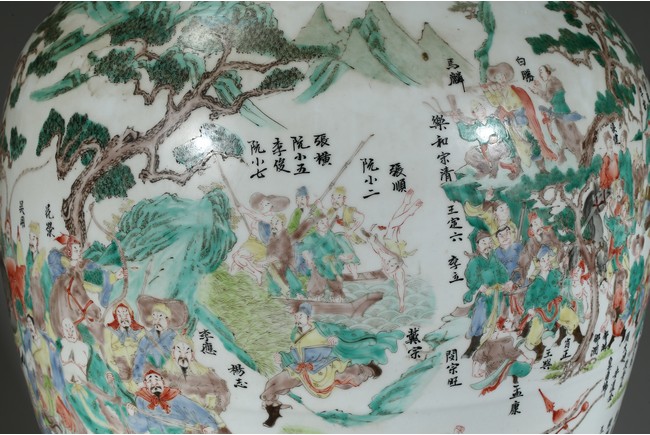 馬麟
白勝
樂和宗清
張橫
阮小五
李俊
阮小七
張順
阮小二
王定六
李立
花榮
吳用
李應
楊志
戴宗
閔宗旺
王英
孟康